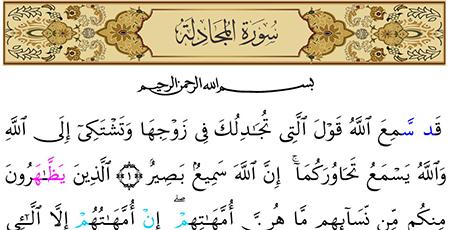 سُورَةُ المُجَادلَة
بِسْمِ اللهِ الرَّحْمَنِ الرَّحِيمِ
قَد سَّمِعَ اللَّهُ قَوْلَ الَّتِى تُجَـٰدِلُكَ فِى زَوْجِهَا وَتَشْتَكِىٓ إِلَى اللَّهِ
وَاللَّهُ يَسْمَعُ تَحَاوُرَكُمَآۚ إِنَّ اللَّهَ سَمِيعٌۢ بَصِيرٌ ﴿١﴾ الَّذِينَ يَظَّـٰهَرُونَ
مِنكُم مِّن نِّسَآئِهِم مَّا هُنَّ أُمَّهَـٰتِهِمْۖ إِنْ أُمَّهَـٰتُهُمْ إِلَّا الَّـٰٓـِٔى